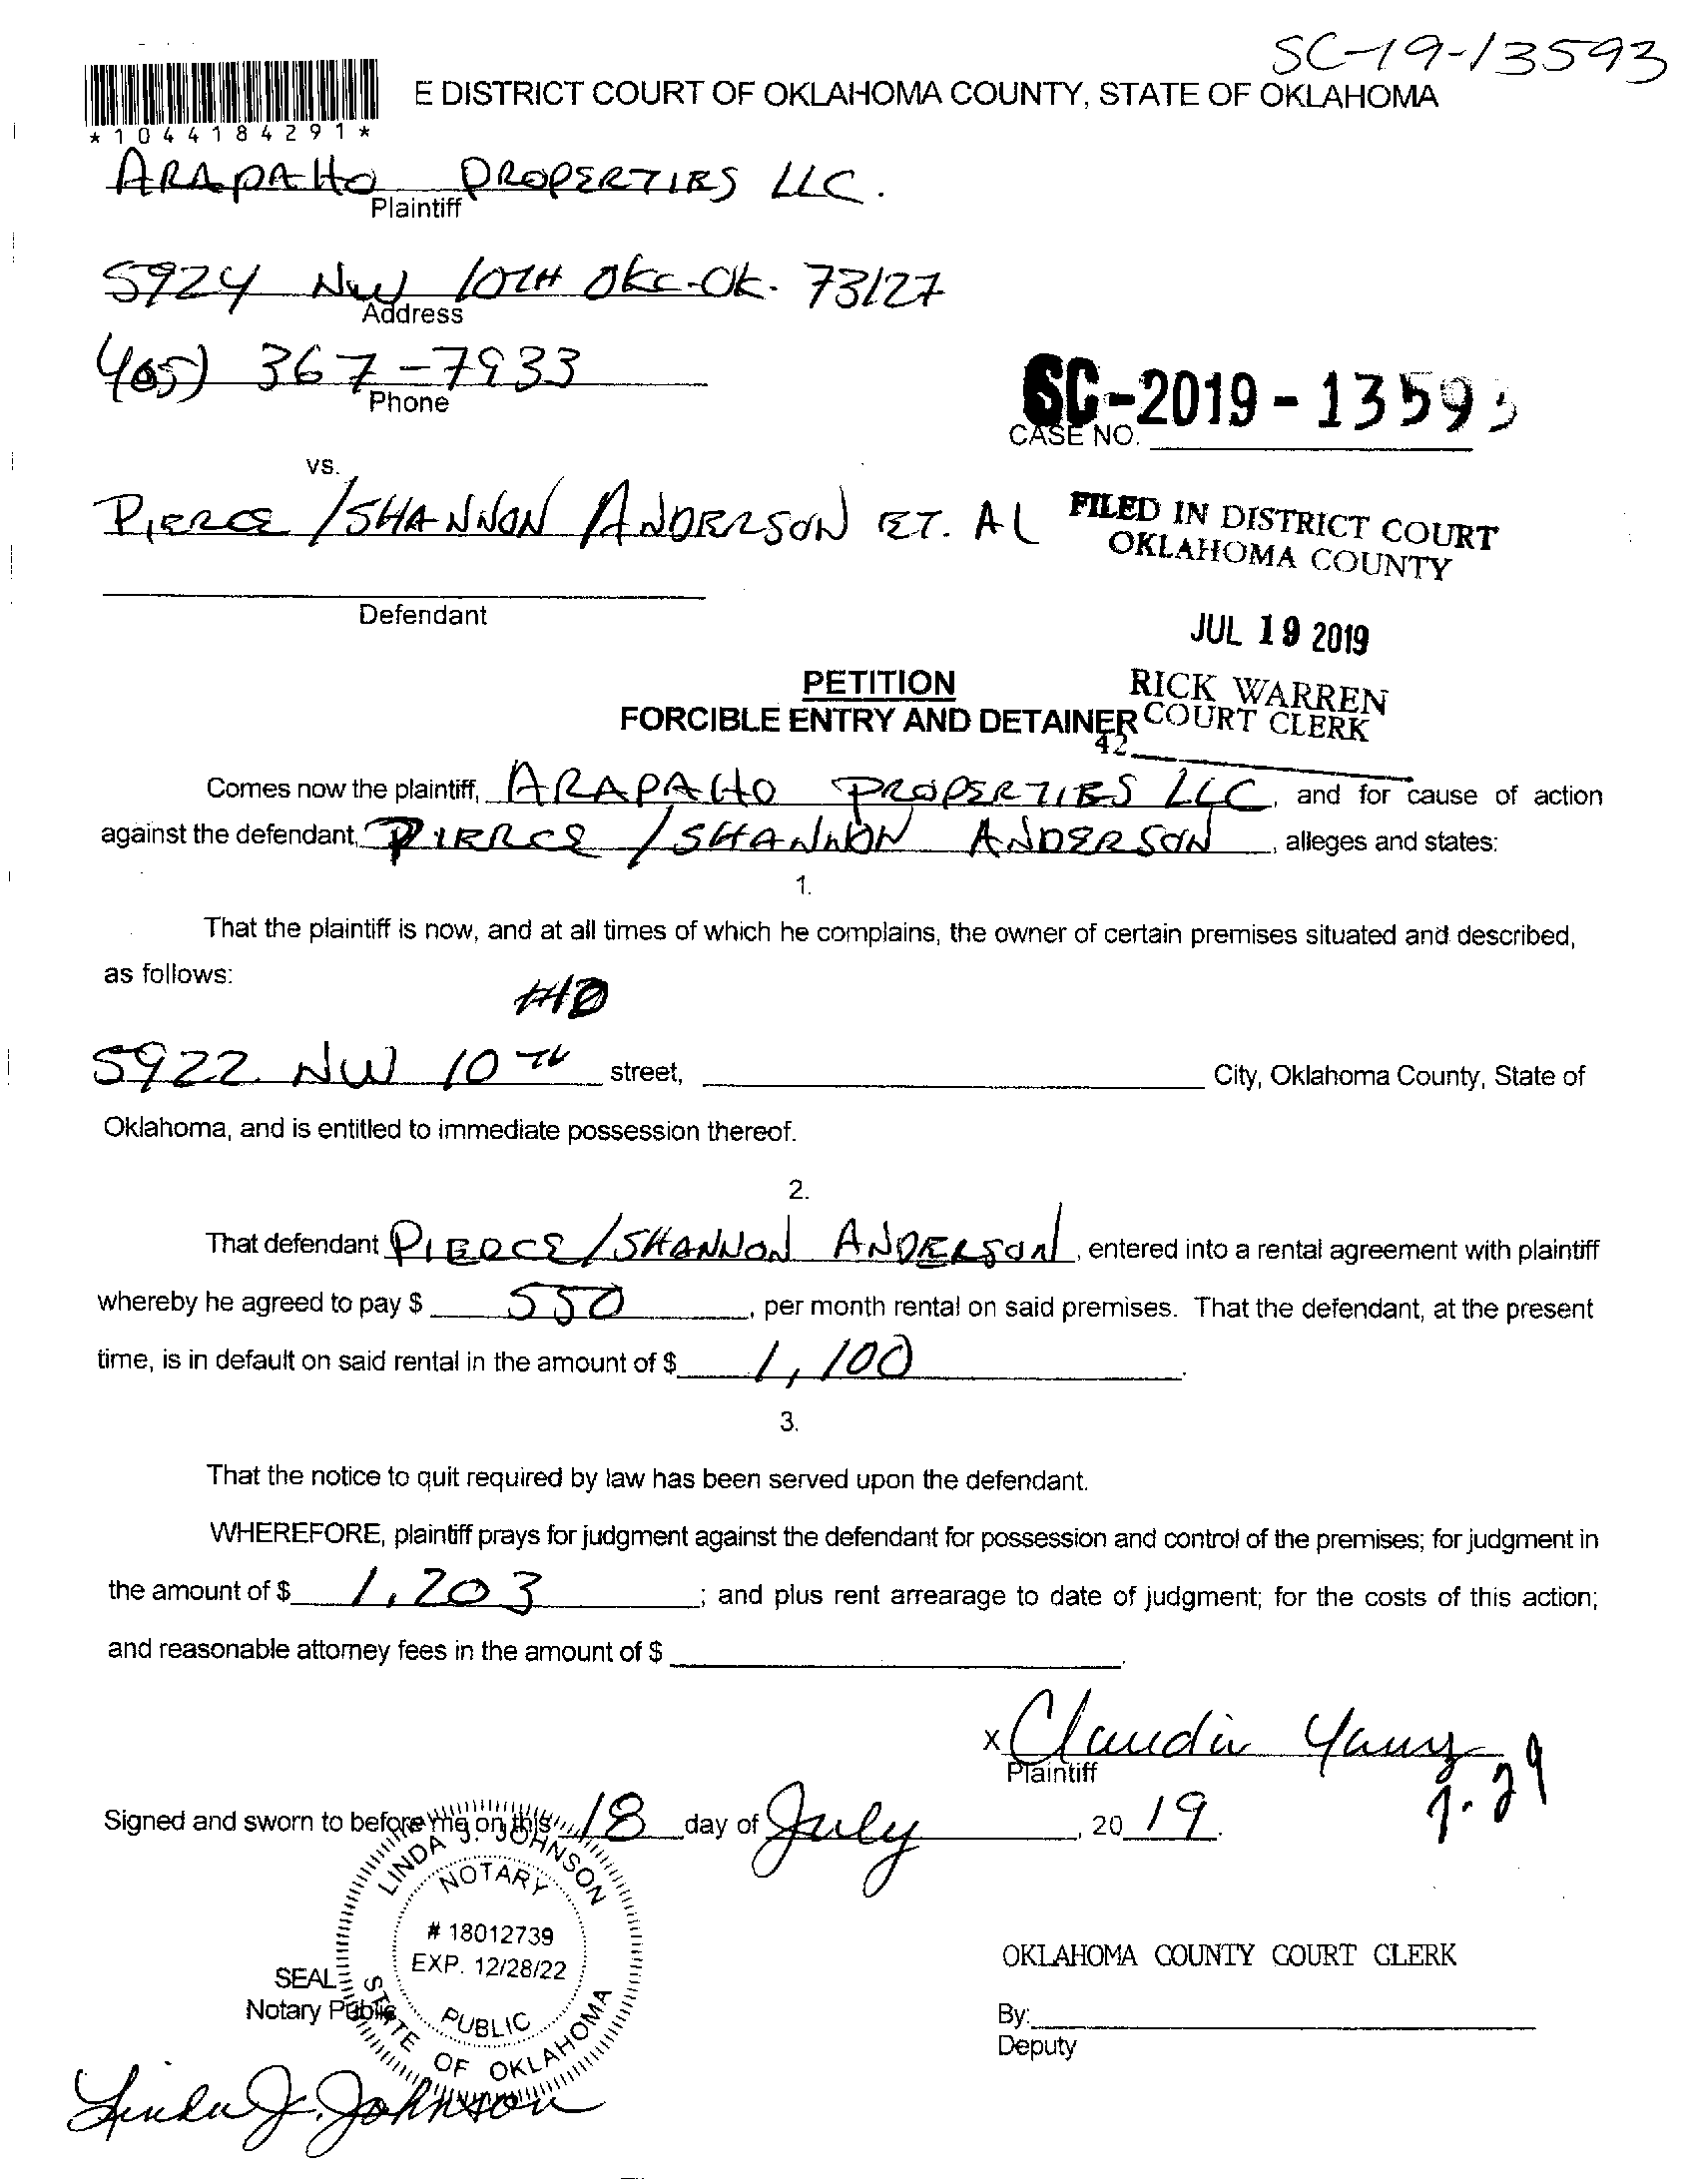 SC-19-13593
E DISTRICT COURT OF OKLAHOMA COUNTY, STATE OF OKLAHOMA
*1044184291*
ARAPAHO PROPERTIES LLC.
Plaintiff
5924 NW 10TH OKC-OK. 73127
Address
405) 367-7933
Phone
SC-2019-13593
CASE NO.
vs.
PIERCE / SHANNON ANDERSON ET. AL
FILED IN DISTRICT COURT
OKLAHOMA COUNTY
Defendant
JUL 19 2019
PETITION
RICK WARREN
FORCIBLE ENTRY AND DETAINER
COURT CLERK
42
Comes now the plaintiff, ARAPAHO PROPERTIES LLC, and for cause of action
against the defendant, PIERCE / SHANNON ANDERSON, alleges and states:
1.
That the plaintiff is now, and at all times of which he complains, the owner of certain premises situated and described,
as follows:
5922 NW 10TH street, City, Oklahoma County, State of
Oklahoma, and is entitled to immediate possession thereof.
2.
That defendant PIERCE / SHANNON ANDERSON, entered into a rental agreement with plaintiff
whereby he agreed to pay $ 550, per month rental on said premises. That the defendant, at the present
time, is in default on said rental in the amount of $ 1,100.
3.
That the notice to quit required by law has been served upon the defendant.
WHEREFORE, plaintiff prays for judgment against the defendant for possession and control of the premises; for judgment in
the amount of $ 1,203; and plus rent arrearage to date of judgment; for the costs of this action;
and reasonable attorney fees in the amount of $ .
x Claudia
Plaintiff
7-29
Signed and sworn to before me on this 18 day of July, 20 19.
LINDA J. JOHNSON
NOTARY
# 18012739
EXP. 12/28/22
PUBLIC
STATE OF OKLAHOMA
SEAL
Notary Public
OKLAHOMA COUNTY COURT CLERK
By:
Deputy
Linda J. Johnson